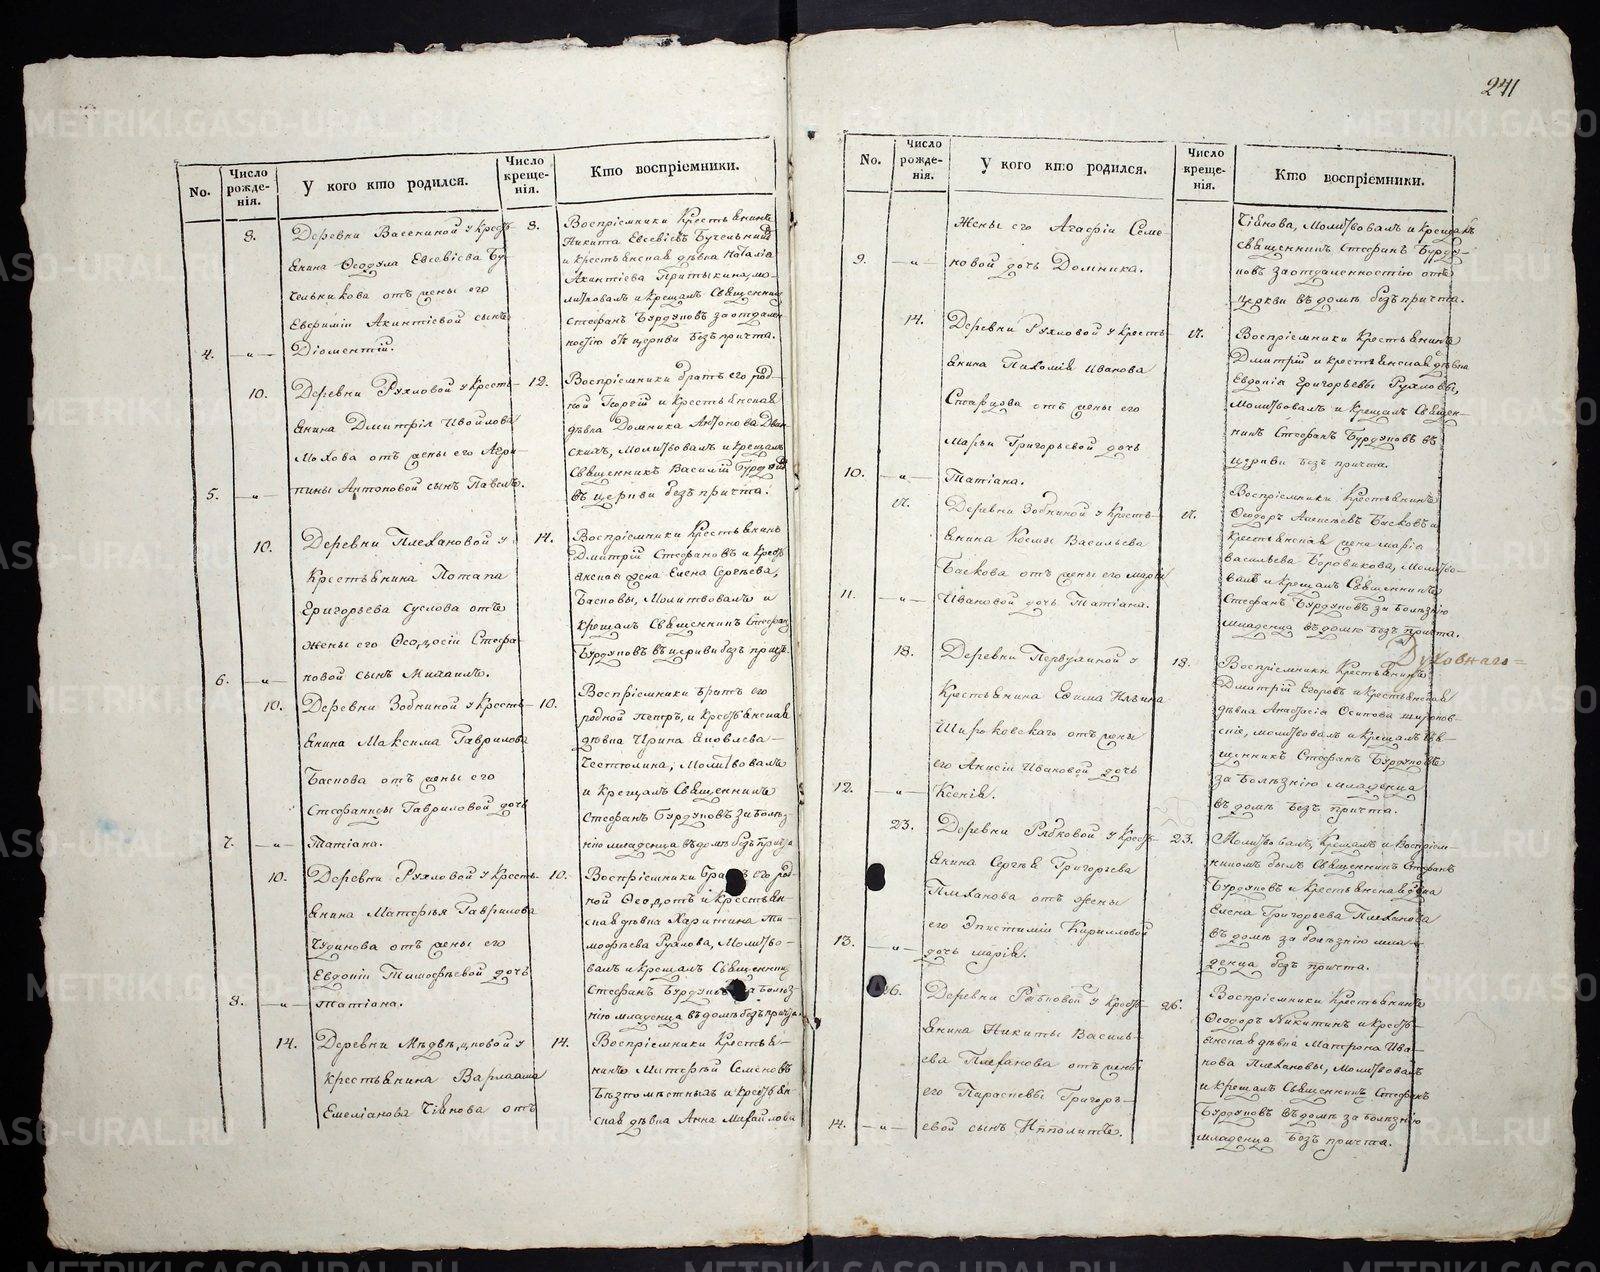 241
No.
Число рожденія.
У кого кто родился.
Число крещенія.
Кто воспріемники.
8.
Деревни Васениной у Кресть
янина Ѳеодула Евсевіева Бу
чельникова отъ жены его
Евфиміи Акинтіевой сынъ
4. —„—
Діоментій.
8.
Воспріемники Крестьянинъ
Никита Евсевіевъ Бучельниковъ
и крестьянская дѣвка Наталія
Акинтіева Притыкина, мо-
литвовалъ и крещалъ Священник
Стефанъ Бурдуковъ за отдален
ностію отъ церкви безъ причта.
10.
Деревни Рухловой у Кресть-
янина Дмитрія Ивойлова
Мохова отъ жены его Агри
5. —„—
пины Антоновой сынъ Павелъ.
12.
Воспріемники братъ его род-
ной Георгій и Крестьянская
дѣвка Домника Антонова
Молитвовалъ и крещалъ
Священникъ Василій
въ церкви безъ причта.
10.
Деревни Плехановой у
Крестьянина Потапа
Григорьева Суслова отъ
жены его Ѳеодосіи Стефа
6. —„—
новой сынъ Михаилъ.
14.
Воспріемники Крестьянинъ
Дмитрій Стефановъ и Кресть
янская жена Елена Сергѣева,
Басковы, Молитвовалъ и
крещалъ Священникъ Стефанъ
Бурдуковъ въ церкви безъ причта.
10.
Деревни Зобниной у Кресть-
янина Максима Гаврилова
Баскова отъ жены его
Стефаниды Гавриловой дочь
7. —„—
Татіана.
10.
Воспріемники братъ его
родной Петръ, и Крестьянская
дѣвка Ирина Яковлева
Молитвовалъ
и Крещалъ Священникъ
Стефанъ Бурдуковъ за болѣз
нію младенца въ домѣ безъ причта
10.
Деревни Рухловой у Кресть-
янина Матфѣя Гаврилова
Чудинова отъ жены его
Евдокіи Тимофѣевой дочь
8. —„—
Татіана.
10.
Воспріемники братъ его род-
ной Ѳеодотъ и Крестьян
ская дѣвка Харитина Ти-
мофѣева Рухлова, Молитво-
валъ и крещалъ Священник
Стефанъ Бурдуковъ за болѣз-
нію младенца въ домѣ безъ причта.
14.
Деревни Медвѣдковой у
крестьянина Варлаама
Емеліанова отъ
14.
Воспріемники Крестья-
нинъ Митрѣй Семеновъ
Безпомѣстныхъ и Крестьян
ская дѣвка Анна Михайлова
No.
Число рожденія.
У кого кто родился.
Число крещенія.
Кто воспріемники.
жены его Агафіи Семе
9. —„—
новой дочь Домника.
Молитвовалъ и крещалъ
Священникъ Стефанъ Бурду-
ковъ за отдаленностію отъ
церкви въ домѣ безъ причта.
14.
Деревни Рухловой у Кресть
янина Пахомія Иванова
Старцова отъ жены его
Марьи Григорьевой дочь
10. —„—
Татіана.
17.
Воспріемники Крестьянинъ
Дмитрій и крестьянская дѣвка
Евдокія Григорьевы Рухловы,
Молитвовалъ и Крещалъ Священ-
никъ Стефанъ Бурдуковъ въ
церкви безъ причта.
17.
Деревни Зобниной у Кресть-
янина Космы Васильева
Баскова отъ жены его Маріи
11. —„—
Ивановой дочь Татіана.
17.
Воспріемники Крестьянинъ
Ѳеодоръ Алексѣевъ Басковъ и
крестьянская жена Марія
Васильева Боровикова, Молитво-
валъ и крещалъ Священникъ
Стефанъ Бурдуковъ за болѣзнію
младенца въ домѣ безъ причта.
Духовнаго=
18.
Деревни Первухиной у
Крестьянина Ефима Ильина
Широковскаго отъ жены
его Анисіи Ивановой дочь
12. —„—
Ксенія.
18.
Воспріемники Крестьянинъ
Дмитрій Егоровъ и Крестьянская
дѣвка Анастасія Осипова Широков-
скіе, молитвовалъ и крещалъ Свя-
щенникъ Стефанъ Бурдуковъ
за болѣзнію младенца
въ домѣ безъ причта.
23.
Деревни Рябковой у Кресть-
янина Сергѣя Григорьева
Плеханова отъ жены
его Эпистиміи Кирилловой
13. —„—
дочь Марія.
23.
Молитвовалъ, Крещалъ и Воспріем-
никомъ былъ Священникъ Стефанъ
Бурдуковъ и Крестьянская дѣвка
Елена Григорьева Плеханова
въ домѣ за болѣзнію мла-
денца безъ причта.
26.
Деревни Рябковой у Кресть-
янина Никиты Василь-
ева Плеханова отъ жены
его Параскевы Григорь-
14. —„—
евой сынъ Ипполитъ.
26.
Воспріемники Крестьянинъ
Ѳеодоръ Никитинъ и Кресть-
янская дѣвка Матрона Ива-
нова Плехановы, Молитвовалъ
и крещалъ Священникъ Стефанъ
Бурдуковъ въ домѣ за болѣзнію
младенца безъ причта.
METRIKI.GASO-URAL.RU